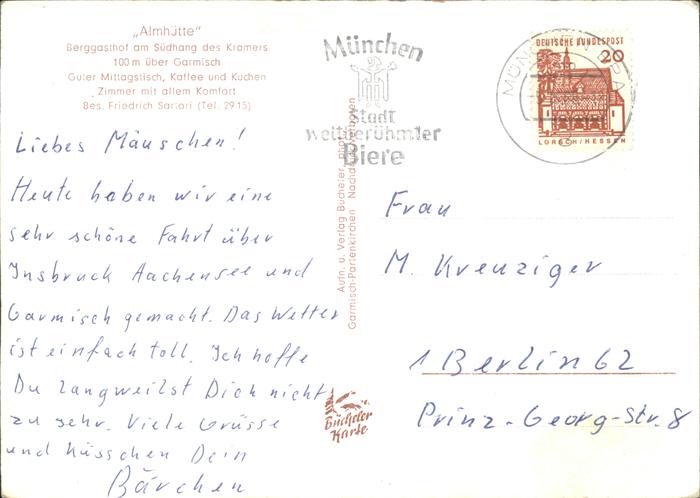 „Almhütte"
Berggasthof am Südhang des Kramers
100 m über Garmisch
Guter Mittagstisch, Kaffee und Kuchen
Zimmer mit allem Komfort
Bes. Friedrich Sartori (Tel. 2915)
Liebes Mäuschen!
Heute haben wir eine
sehr schöne Fahrt über
Insbruck Aachensee und
Garmisch gemacht. Das Wetter
ist einfach toll. Ich hoffe
Du langweilst Dich nicht
zu sehr. Viele Grüsse
und Küsschen Dein
Bärchen
Aufn. u. Verlag Bücheler,
Garmisch-Partenkirchen
Bücheler
Karte
München
Stadt
weltberühmter
Biere
DEUTSCHE BUNDESPOST
20
LORSCH/HESSEN
MÜNCHEN
Frau
M. Kreuziger
1 Berlin 62
Prinz-Georg-Str. 8